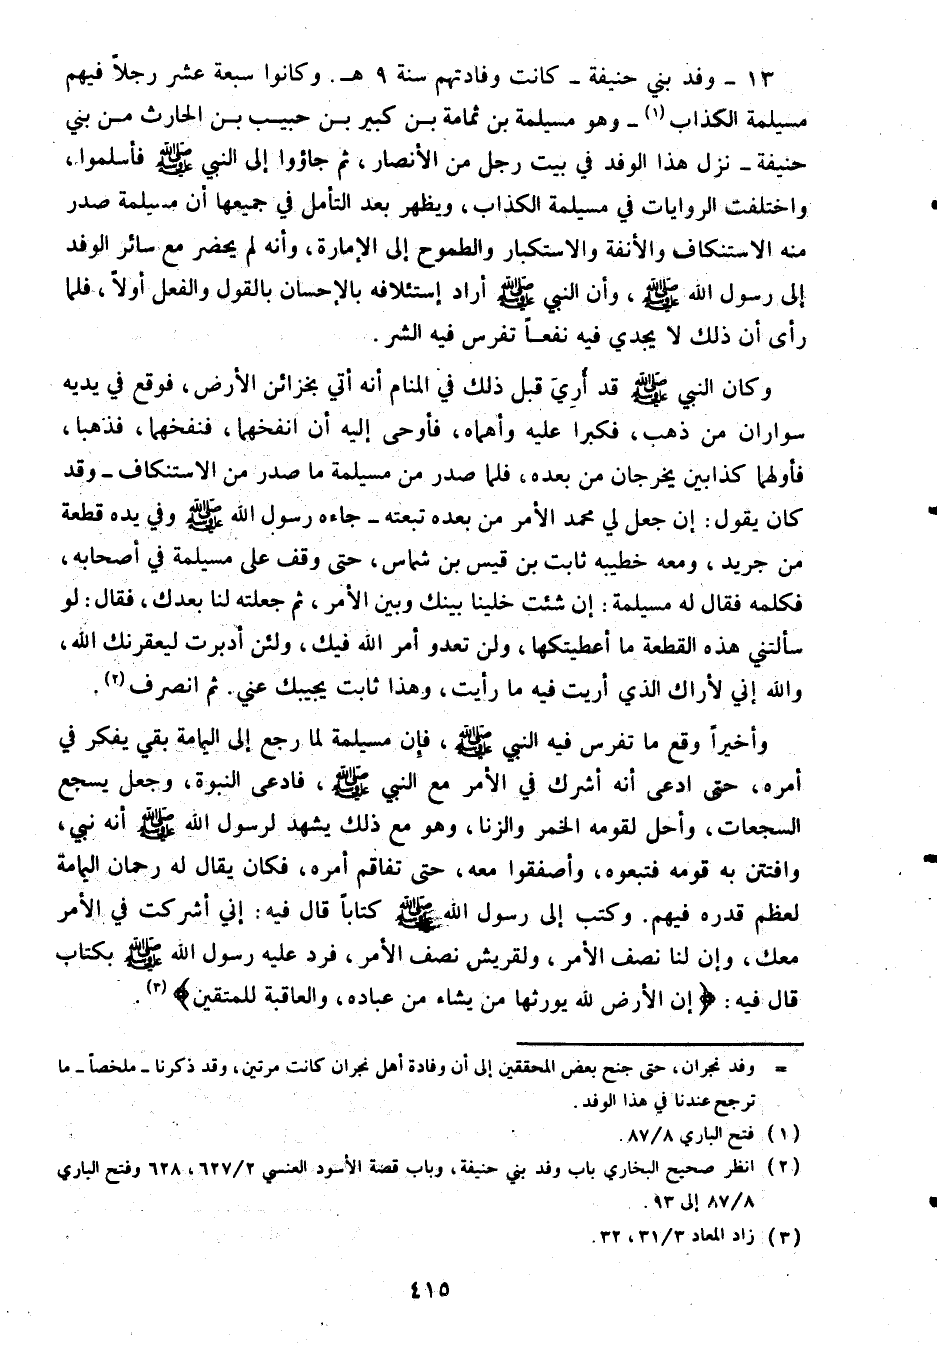 ١٣ ـ وفد بني حنيفة ـ كانت وفادتهم سنة ٩ هـ. وكانوا سبعة عشر رجلاً فيهم
مسيلمة الكذاب (١) ـ وهو مسيلمة بن ثمامة بن كبير بن حبيب بن الحارث من بني
حنيفة ـ نزل هذا الوفد في بيت رجل من الأنصار، ثم جاؤوا إلى النبي ﷺ فأسلموا،
واختلفت الروايات في مسيلمة الكذاب، ويظهر بعد التأمل في جميعها أن مسيلمة صدر
منه الاستنكاف والأنفة والاستكبار والطموح إلى الإمارة، وأنه لم يحضر مع سائر الوفد
إلى رسول الله ﷺ، وأن النبي ﷺ أراد إستئلافه بالإحسان بالقول والفعل أولاً، فلما
رأى أن ذلك لا يجدي فيه نفعاً تفرس فيه الشر.
وكان النبي ﷺ قد أُريَ قبل ذلك في المنام أنه أتي بخزائن الأرض، فوقع في يديه
سواران من ذهب، فكبرا عليه وأهماه، فأوحى إليه أن انفخهما، فنفخهما، فذهبا،
فأولهما كذابين يخرجان من بعده، فلما صدر من مسيلمة ما صدر من الاستنكاف ـ وقد
كان يقول: إن جعل لي محمد الأمر من بعده تبعته ـ جاءه رسول الله ﷺ وفي يده قطعة
من جريد، ومعه خطيبه ثابت بن قيس بن شماس، حتى وقف على مسيلمة في أصحابه،
فكلمه فقال له مسيلمة: إن شئت خلينا بينك وبين الأمر، ثم جعلته لنا بعدك، فقال: لو
سألتني هذه القطعة ما أعطيتكها، ولن تعدو أمر الله فيك، ولئن أدبرت ليعقرنك الله،
والله إني لأراك الذي أريت فيه ما رأيت، وهذا ثابت يجيبك عني. ثم انصرف (٢).
وأخيراً وقع ما تفرس فيه النبي ﷺ، فإن مسيلمة لما رجع إلى اليمامة بقي يفكر في
أمره، حتى ادعى أنه أشرك في الأمر مع النبي ﷺ، فادعى النبوة، وجعل يسجع
السجعات، وأحل لقومه الخمر والزنا، وهو مع ذلك يشهد لرسول الله ﷺ أنه نبي،
وافتتن به قومه فتبعوه، وأصفقوا معه، حتى تفاقم أمره، فكان يقال له رحمان اليمامة
لعظم قدره فيهم. وكتب إلى رسول الله ﷺ كتاباً قال فيه: إني أشركت في الأمر
معك، وإن لنا نصف الأمر، ولقريش نصف الأمر، فرد عليه رسول الله ﷺ بكتاب
قال فيه: ﴿إن الأرض لله يورثها من يشاء من عباده، والعاقبة للمتقين﴾ (٣).
= وفد نجران، حتى جنح بعض المحققين إلى أن وفادة أهل نجران كانت مرتين، وقد ذكرنا ـ ملخصاً ـ ما
ترجح عندنا في هذا الوفد.
(١) فتح الباري ٨/ ٨٧.
(٢) انظر صحيح البخاري باب وفد بني حنيفة، وباب قصة الأسود العنسي ٢/ ٦٢٧، ٦٢٨ وفتح الباري
٨/ ٨٧ إلى ٩٣.
(٣) زاد المعاد ٣/ ٣١، ٣٢.
٤١٥